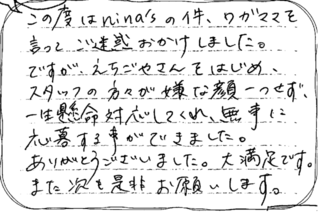 この度はnina'sの件、ワガママを
言ってご迷惑おかけしました。
ですが、えちごやさんをはじめ、
スタッフの方々が嫌な顔一つせず、
一生懸命対応してくれ、無事に
応募する事ができました。
ありがとうございました。大満足です。
また次も是非お願いします。